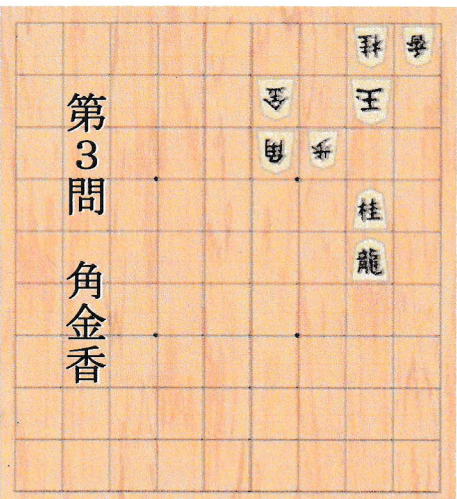 第3問 角金香
桂 香
金 王
角 歩
桂
龍